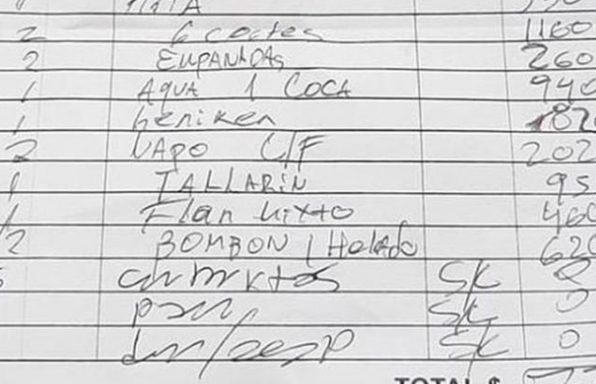 2 6 cortes 1160
2 EMPANADAS 260
1 AQUA 1 COCA 940
1 heniken 182
2 VAPO C/F 202
1 TALLARIN 95
1 Flan Mixto 460
2 BOMBON 1 Helado 620
SK 0
SK 0
SK 0
TOTAL $